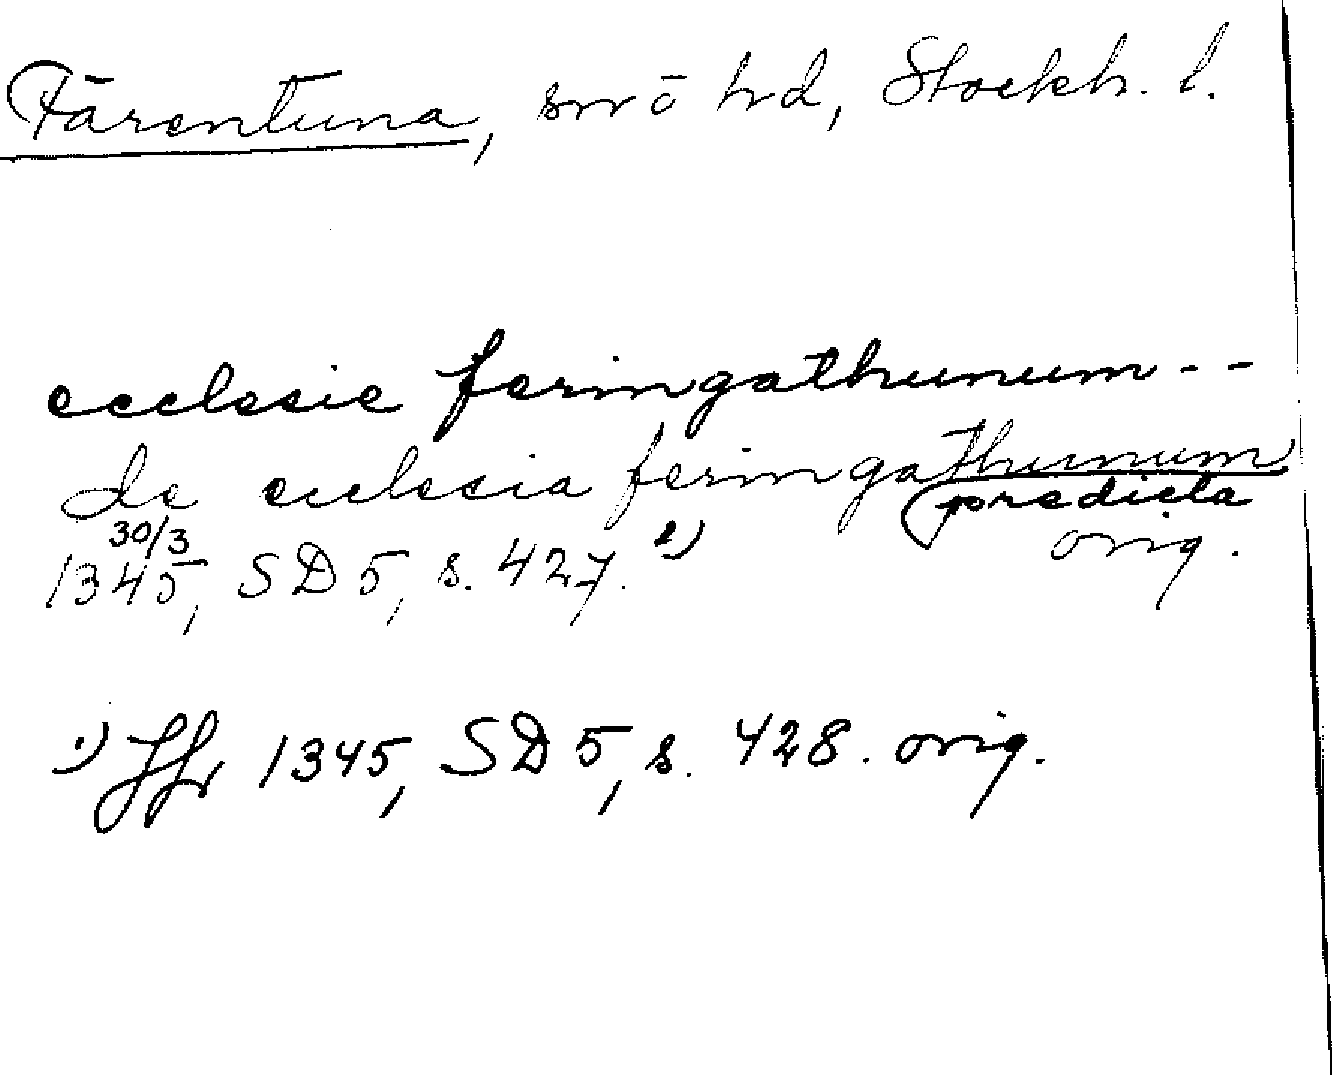 Färentuna, sn o hd, Stockh. l.
ecclesie feringathunum - -
de ecclesia feringathunum
predicta
30/3 orig.
1345, SD 5, s. 427. 1)
1) Jfr 1345, SD 5, s. 428. orig.